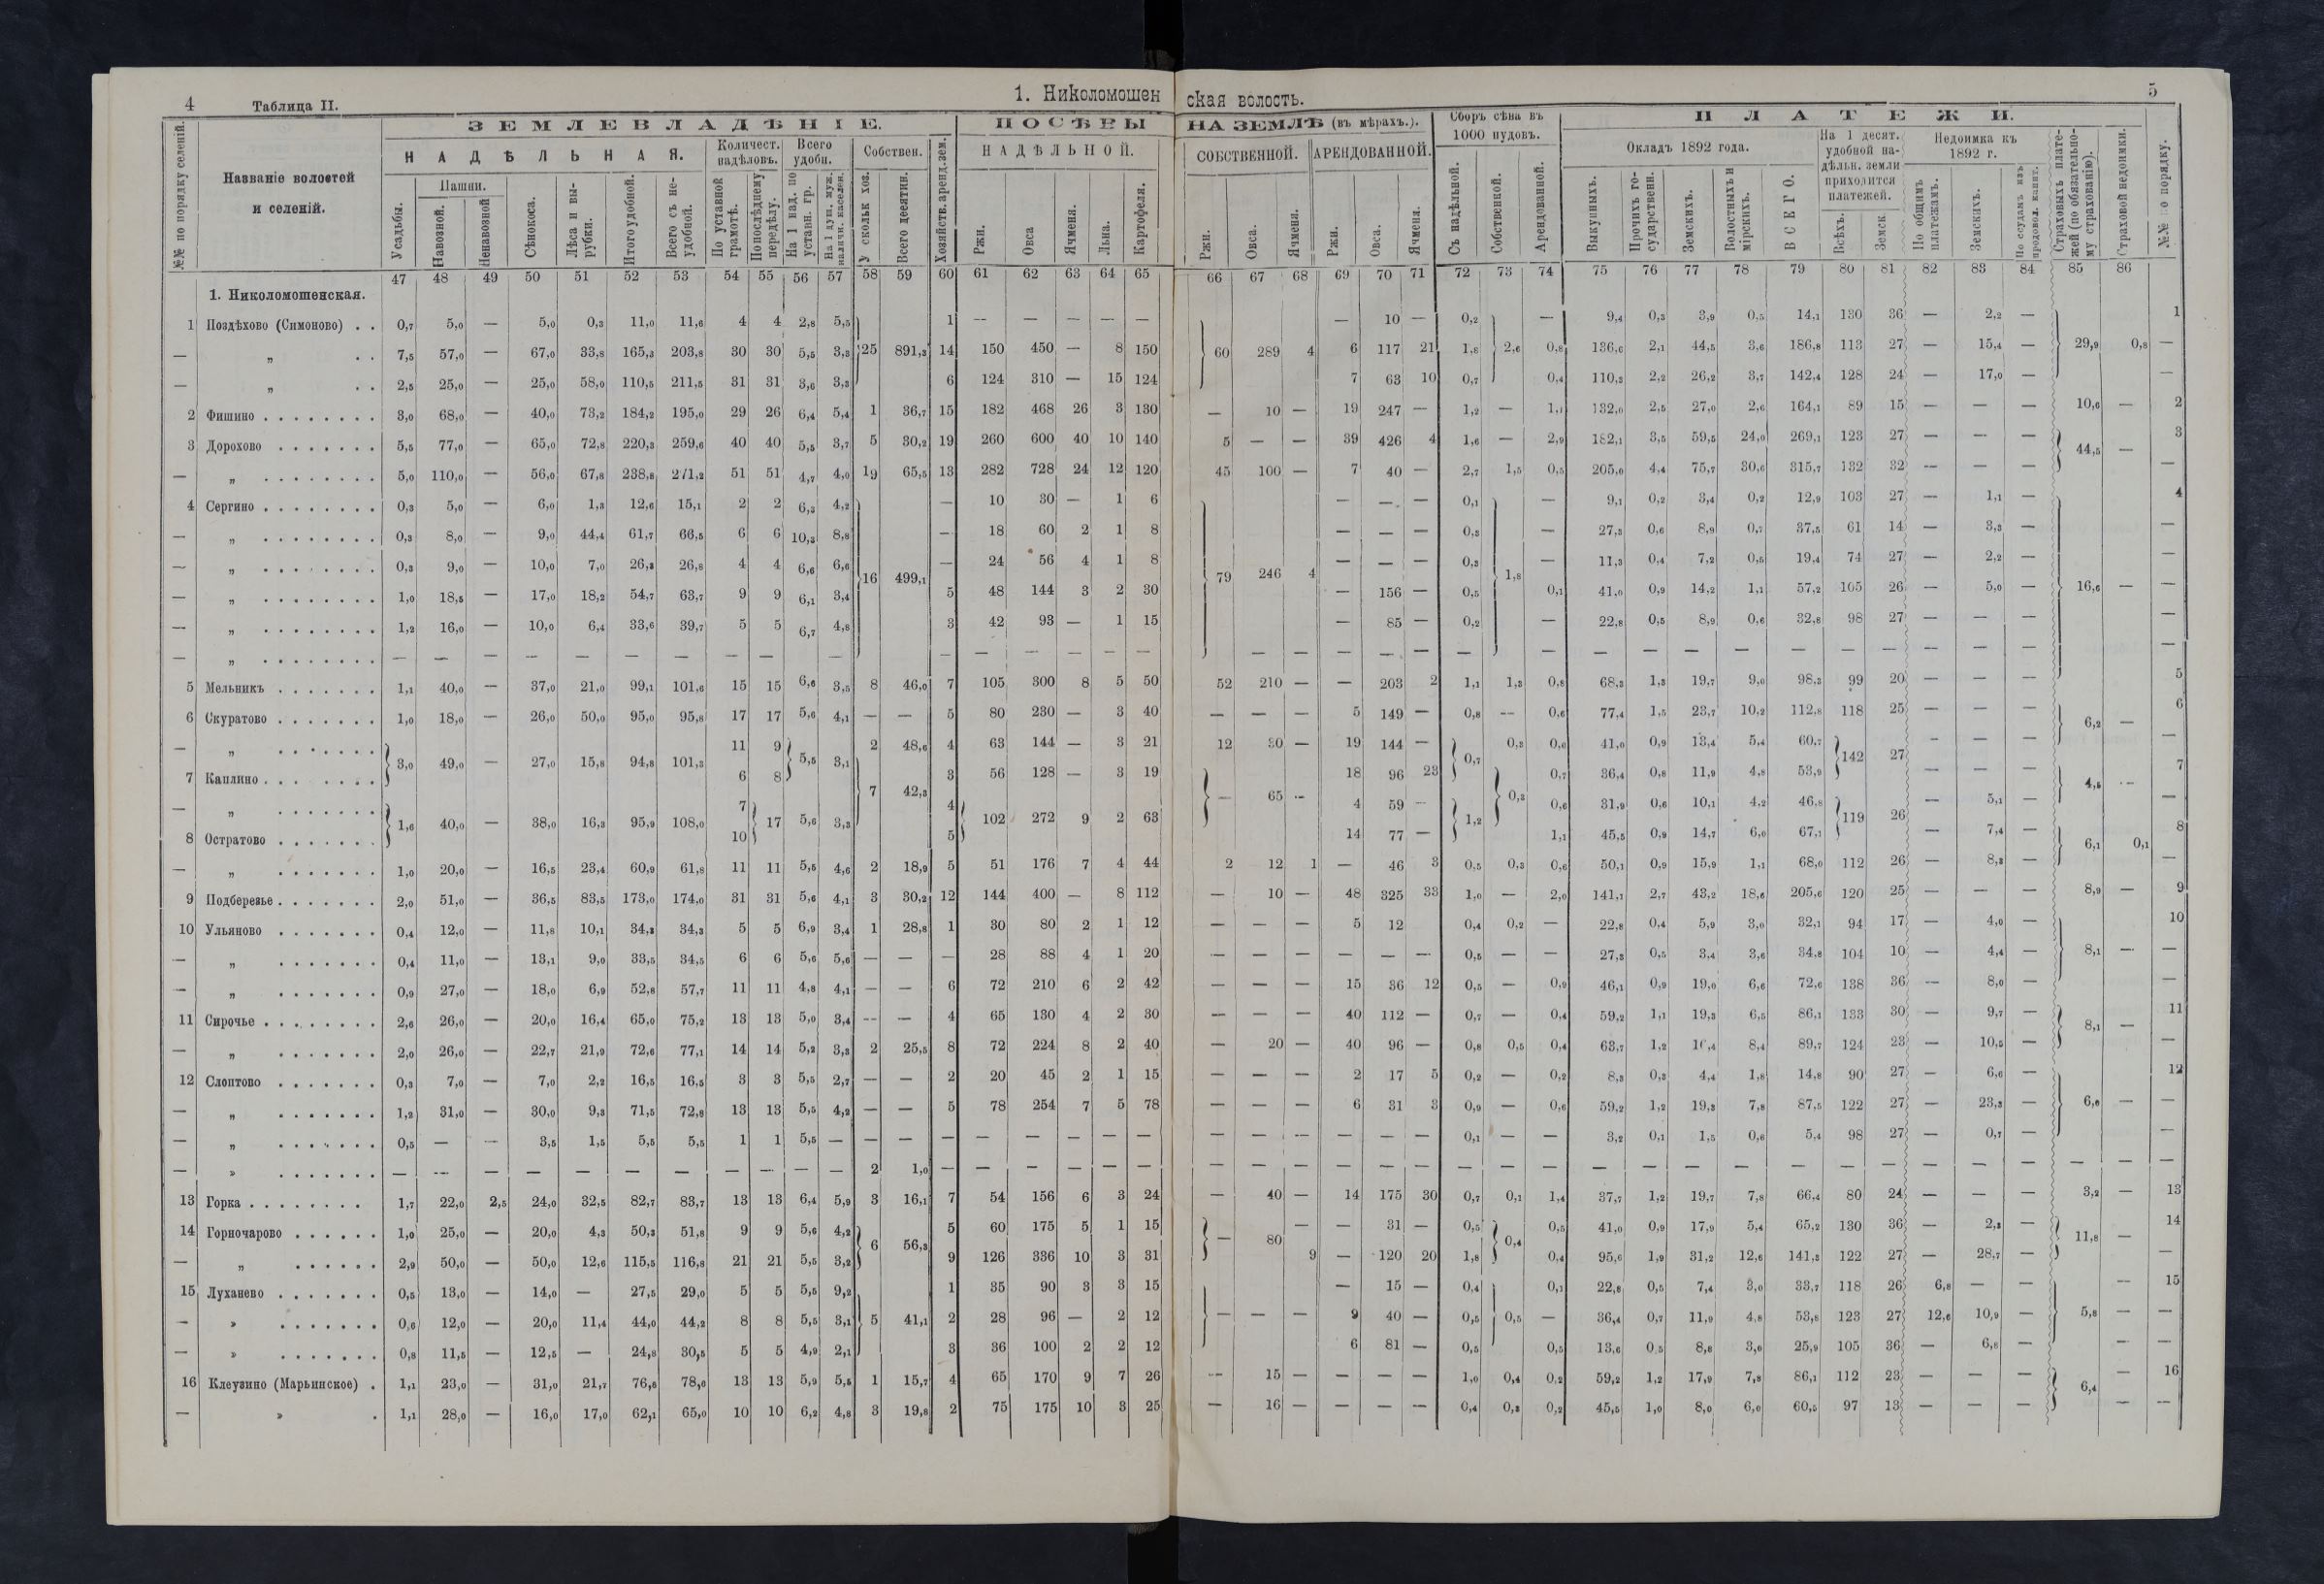 4 Таблица II. 1. Николомошен
ская волость. 5
№№ по порядку селеній. Названіе волостей и селеній.
ЗЕМЛЕВЛАДѢНІЕ. ПОСѢВЫ НА ЗЕМЛѢ (въ мѣрахъ.). Сборъ сѣна въ 1000 пудовъ. ПЛАТЕЖИ.
НАДѢЛЬНАЯ. Количест. надѣловъ. Всего удобн. Собствен. Хозяйств. аренд. зем. НАДѢЛЬНОЙ. СОБСТВЕННОЙ. АРЕНДОВАННОЙ.
Окладъ 1892 года. На 1 десят. удобной надѣльн. земли приходится платежей. Недоимка къ 1892 г.
Усадьбы. Пашни. Навозной. Ненавозной Сѣнокоса. Лѣса и вырубки. Итого удобной. Всего съ неудобной. По уставной грамотѣ. По послѣднему передѣлу. На 1 над. по уставн. гр. На 1 душ. муж. наличн. населен. У сколькх хоз. Всего десятин.
Ржи. Овса Ячменя. Льна. Картофеля. Ржи. Овса. Ячменя. Ржи. Овса. Ячменя. Съ надѣльной. Собственной. Арендованной.
Выкупныхъ. Прочихъ государственн. Земскихъ. Волостныхъ и мірскихъ. ВСЕГО. Всѣхъ. Земск По общимъ платежамъ. Земскихъ. По ссудамъ изъ продовол. капит. Страховыхъ платежей (по обязательному страхованію). Страховой недоимки. №№ по порядку.
47 48 49 50 51 52 53 54 55 56 57 58 59 60 61 62 63 64 65 66 67 68 69 70 71 72 73 74 75 76 77 78 79 80 81 82 83 84 85 86
1. Николомошенская.
1 Поздѣхово (Симоново) . . 0,7 5,0 — 5,0 0,3 11,0 11,6 4 4 2,8 5,5 1 — — — — — — 10 — 0,2 — 9,4 0,3 3,9 0,5 14,1 130 36 — 2,2 — 1
— „ . . 7,5 57,0 — 67,0 33,8 165,3 203,8 30 30 5,5 3,3 25 891,3 14 150 450 — 8 150 60 289 4 6 117 21 1,8 2,6 0,8 136,6 2,1 44,5 3,6 186,8 113 27 — 15,4 — 29,9 0,8 —
— „ . . 2,5 25,0 — 25,0 58,0 110,5 211,5 31 31 3,6 3,3 6 124 310 — 15 124 7 63 10 0,7 0,4 110,3 2,2 26,2 3,7 142,4 128 24 — 17,0 — —
2 Фишино . . . . . . . . 3,0 68,0 — 40,0 73,2 184,2 195,0 29 26 6,4 5,4 1 36,7 15 182 468 26 3 130 — 10 — 19 247 — 1,2 — 1,1 132,0 2,5 27,0 2,6 164,1 89 15 — — — 10,6 — 2
3 Дорохово . . . . . . . 5,5 77,0 — 65,0 72,8 220,3 259,6 40 40 5,5 3,7 5 30,2 19 260 600 40 10 140 5 — — 39 426 4 1,6 — 2,9 182,1 3,5 59,5 24,0 269,1 123 27 — — — 44,5 — 3
— „ . . . . . . . . 5,0 110,0 — 56,0 67,8 238,8 271,2 51 51 4,7 4,0 19 65,5 13 282 728 24 12 120 45 100 — 7 40 — 2,7 1,5 0,5 205,0 4,4 75,7 30,6 315,7 132 32 — — — —
4 Сергино . . . . . . . . 0,3 5,0 — 6,0 1,3 12,6 15,1 2 2 6,3 4,2 — 10 30 — 1 6 — — — 0,1 — 9,1 0,2 3,4 0,2 12,9 103 27 — 1,1 — 4
— „ . . . . . . . . 0,3 8,0 — 9,0 44,4 61,7 66,5 6 6 10,3 8,8 — 18 60 2 1 8 — — — 0,3 — 27,3 0,6 8,9 0,7 37,5 61 14 — 3,3 — —
— „ . . . . . . . . 0,3 9,0 — 10,0 7,0 26,3 26,8 4 4 6,6 6,6 16 499,1 — 24 56 4 1 8 79 246 4 — — — 0,3 1,8 — 11,3 0,4 7,2 0,5 19,4 74 27 — 2,2 — —
— „ . . . . . . . . 1,0 18,5 — 17,0 18,2 54,7 63,7 9 9 6,1 3,4 5 48 144 3 2 30 — 156 — 0,5 0,1 41,0 0,9 14,2 1,1 57,2 105 26 — 5,0 — 16,6 — —
— „ . . . . . . . . 1,2 16,0 — 10,0 6,4 33,6 39,7 5 5 6,7 4,8 3 42 93 — 1 15 — 85 — 0,2 — 22,8 0,5 8,9 0,6 32,8 98 27 — — — —
— „ . . . . . . . . — — — — — — — — — — — — — — — — — — — — — — — — — — — — — — — — — — —
5 Мельникъ . . . . . . . 1,1 40,0 — 37,0 21,0 99,1 101,6 15 15 6,6 3,5 8 46,0 7 105 300 8 5 50 52 210 — — 203 2 1,1 1,3 0,8 68,3 1,3 19,7 9,0 98,3 99 20 — — — 5
6 Скуратово . . . . . . . 1,0 18,0 — 26,0 50,0 95,0 95,8 17 17 5,6 4,1 — — 5 80 230 — 3 40 — — — 5 149 — 0,8 — 0,6 77,4 1,5 23,7 10,2 112,8 118 25 — — — 6,2 — 6
— „ . . . . . . . 3,0 49,0 — 27,0 15,8 94,8 101,3 11 9 5,5 3,1 2 48,6 4 63 144 — 3 21 12 30 — 19 144 — 0,7 0,3 0,6 41,0 0,9 13,4 5,4 60,7 142 27 — — —
7 Каплино . . . . . . . 6 8 7 42,3 3 56 128 — 3 19 — 65 — 18 96 23 0,3 0,7 36,4 0,8 11,9 4,8 53,9 — — — 4,5 — 7
— „ . . . . . . . 1,6 40,0 — 38,0 16,3 95,9 108,0 7 17 5,6 3,3 4 102 272 9 2 63 4 59 — 1,2 0,6 31,9 0,6 10,1 4,2 46,8 119 26 — 5,1 — —
8 Остратово . . . . . . . 10 5 14 77 — 1,1 45,5 0,9 14,7 6,0 67,1 — 7,4 — 6,1 0,1 8
— „ . . . . . . . 1,0 20,0 — 16,5 23,4 60,9 61,8 11 11 5,5 4,6 2 18,9 5 51 176 7 4 44 2 12 1 — 46 3 0,5 0,3 0,6 50,1 0,9 15,9 1,1 68,0 112 26 — 8,3 — —
9 Подберезье . . . . . . . 2,0 51,0 — 36,5 83,5 173,0 174,0 31 31 5,6 4,1 3 30,2 12 144 400 — 8 112 — 10 — 48 325 33 1,0 — 2,0 141,1 2,7 43,2 18,6 205,6 120 25 — — — 8,9 — 9
10 Ульяново . . . . . . . 0,4 12,0 — 11,8 10,1 34,3 34,3 5 5 6,9 3,4 1 28,8 1 30 80 2 1 12 — — — 5 12 0,4 0,2 — 22,8 0,4 5,9 3,0 32,1 94 17 — 4,0 — 10
— „ . . . . . . . 0,4 11,0 — 13,1 9,0 33,5 34,5 6 6 5,6 5,6 — — — 28 88 4 1 20 — — — — — — 0,5 — — 27,3 0,5 3,4 3,6 34,8 104 10 — 4,4 — 8,1 — —
— „ . . . . . . . 0,9 27,0 — 18,0 6,9 52,8 57,7 11 11 4,8 4,1 — — 6 72 210 6 2 42 — — — 15 36 12 0,5 — 0,9 46,1 0,9 19,0 6,6 72,6 138 36 — 8,0 — —
11 Сирочье . . . . . . . . 2,6 26,0 — 20,0 16,4 65,0 75,2 13 13 5,0 3,4 — — 4 65 130 4 2 30 — — — 40 112 — 0,7 — 0,4 59,2 1,1 19,3 6,5 86,1 133 30 — 9,7 — 8,1 — 11
— „ . . . . . . . 2,0 26,0 — 22,7 21,9 72,6 77,1 14 14 5,2 3,3 2 25,5 8 72 224 8 2 40 — 20 — 40 96 — 0,8 0,5 0,4 63,7 1,2 16,4 8,4 89,7 124 23 — 10,5 — —
12 Слоптово . . . . . . . 0,3 7,0 — 7,0 2,2 16,5 16,5 3 3 5,5 2,7 — — 2 20 45 2 1 15 — — — 2 17 5 0,2 — 0,2 8,3 0,3 4,4 1,8 14,8 90 27 — 6,6 — 12
— „ . . . . . . . 1,2 31,0 — 30,0 9,3 71,5 72,8 13 13 5,5 4,2 — — 5 78 254 7 5 78 — — — 6 31 3 0,9 — 0,6 59,2 1,2 19,3 7,8 87,5 122 27 — 23,3 — 6,6 — —
— „ . . . . . . . 0,5 — — 3,5 1,5 5,5 5,5 1 1 5,5 — — — — — — — — — — — — — — — 0,1 — — 3,2 0,1 1,5 0,6 5,4 98 27 — 0,7 — —
— » . . . . . . . — — — — — — — — — — — 2 1,0 — — — — — — — — — — — — — — — — — — — — — — — — — — — —
13 Горка . . . . . . . . 1,7 22,0 2,5 24,0 32,5 82,7 83,7 13 13 6,4 5,9 3 16,1 7 54 156 6 3 24 — 40 — 14 175 30 0,7 0,1 1,4 37,7 1,2 19,7 7,8 66,4 80 24 — — — 3,2 — 13
14 Горночарово . . . . . . 1,0 25,0 — 20,0 4,3 50,3 51,8 9 9 5,6 4,2 6 56,3 5 60 175 5 1 15 — 80 — — 31 — 0,5 0,4 0,5 41,0 0,9 17,9 5,4 65,2 130 36 — 2,3 — 11,8 — 14
— „ . . . . . . 2,9 50,0 — 50,0 12,6 115,5 116,8 21 21 5,5 3,2 9 126 336 10 3 31 9 — 120 20 1,8 0,4 95,6 1,9 31,2 12,6 141,3 122 27 — 28,7 — —
15 Луханево . . . . . . . 0,5 13,0 — 14,0 — 27,5 29,0 5 5 5,5 9,2 1 35 90 3 3 15 — 15 — 0,4 0,1 22,8 0,5 7,4 3,0 33,7 118 26 6,8 — — — 15
— » . . . . . . . 0,6 12,0 — 20,0 11,4 44,0 44,2 8 8 5,5 3,1 5 41,1 2 28 96 — 2 12 — — — 9 40 — 0,5 0,5 — 36,4 0,7 11,9 4,8 53,8 123 27 12,6 10,9 — 5,8 — —
— » . . . . . . . 0,8 11,5 — 12,5 — 24,8 30,5 5 5 4,9 2,1 3 36 100 2 2 12 6 81 — 0,5 0,5 13,6 0,5 8,8 3,0 25,9 105 36 — 6,8 — — —
16 Клеузино (Марьинское) . 1,1 23,0 — 31,0 21,7 76,8 78,6 13 13 5,9 5,8 1 15,7 4 65 170 9 7 26 — 15 — — — — 1,0 0,4 0,2 59,2 1,2 17,9 7,8 86,1 112 23 — — — 6,4 — 16
— » . 1,1 28,0 — 16,0 17,0 62,1 65,0 10 10 6,2 4,8 3 19,8 2 75 175 10 3 25 — 16 — — — — 0,4 0,3 0,2 45,5 1,0 8,0 6,0 60,5 97 13 — — — — —